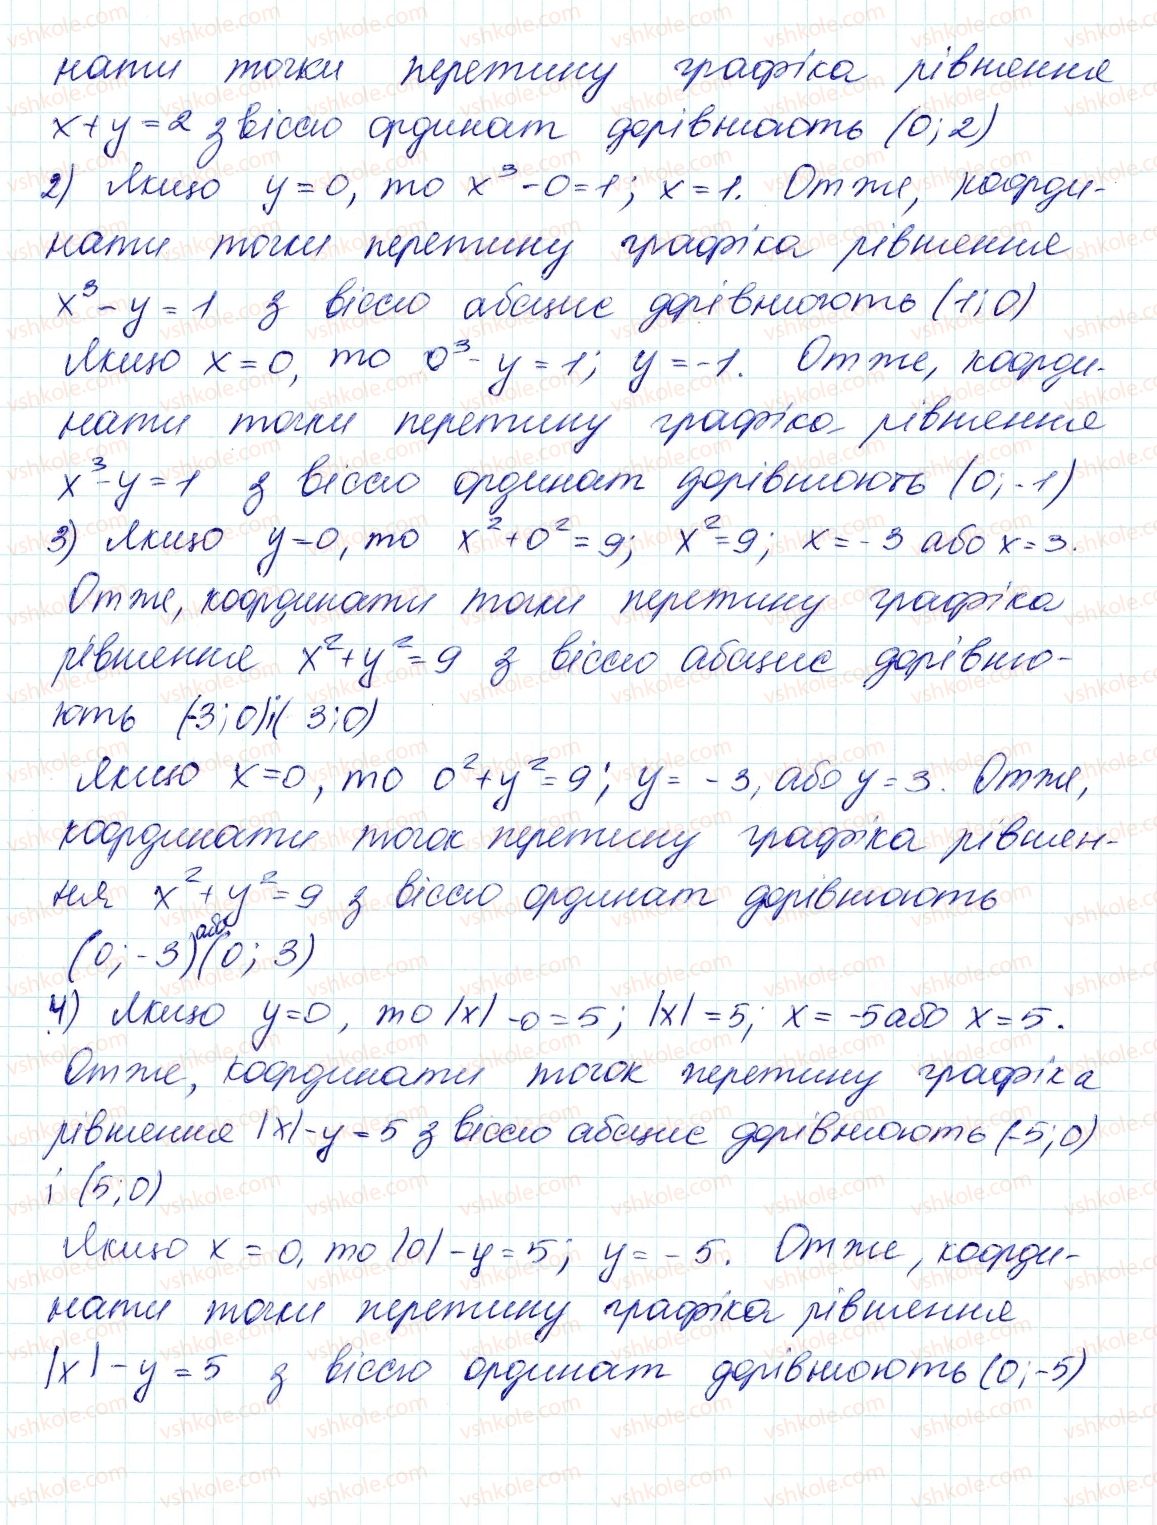 нати точки перетину графіка рівняння
x + y = 2 з віссю ординат дорівнюють (0; 2)
2) Якщо y = 0, то x³ - 0 = 1; x = 1. Отже, коорди-
нати точки перетину графіка рівняння
x³ - y = 1 з віссю абсцис дорівнюють (1; 0)
Якщо x = 0, то 0³ - y = 1; y = -1. Отже, коорди-
нати точки перетину графіка рівняння
x³ - y = 1 з віссю ординат дорівнюють (0; -1)
3) Якщо y = 0, то x² + 0² = 9; x² = 9; x = -3 або x = 3.
Отже, координати точки перетину графіка
рівняння x² + y² = 9 з віссю абсцис дорівню-
ють (-3; 0) і (3; 0)
Якщо x = 0, то 0² + y² = 9; y = -3, або y = 3. Отже,
координати точок перетину графіка рівнян-
ня x² + y² = 9 з віссю ординат дорівнюють
(0; -3) або (0; 3)
4) Якщо y = 0, то |x| - 0 = 5; |x| = 5; x = -5 або x = 5.
Отже, координати точок перетину графіка
рівняння |x| - y = 5 з віссю абсцис дорівнюють (-5; 0)
і (5; 0)
Якщо x = 0, то |0| - y = 5; y = -5. Отже, коорди-
нати точки перетину графіка рівняння
|x| - y = 5 з віссю ординат дорівнюють (0; -5)